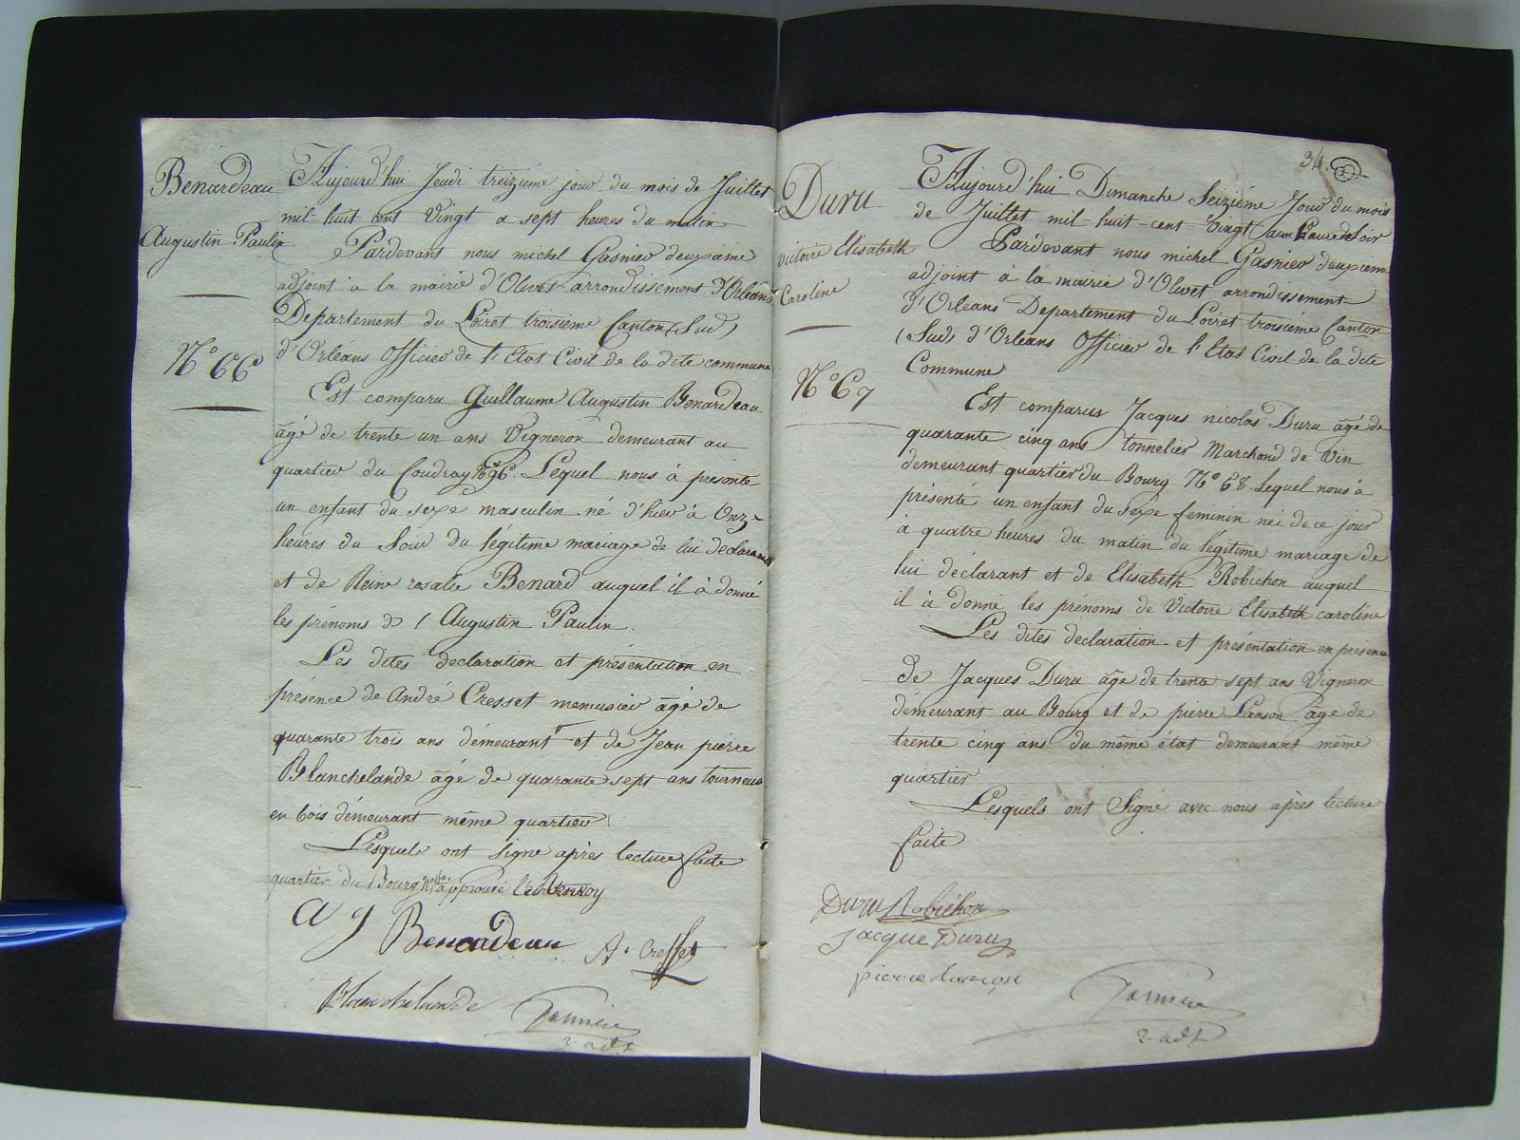 Benardeau
Augustin Paulin
N° 66
Aujourd'hui Jeudi treizieme jour du mois de Juillet
mil huit cent Vingt a sept heures du matin
Pardevant nous michel Gasnier deuxieme
adjoint a la mairie d'Olivet arrondissement d'Orléans
Departement du Loiret troisième Canton (Sud)
d'Orléans Officier de l'Etat Civil de la dite commune
Est comparu Guillaume Augustin Benardeau
âgé de trente un ans Vigneron demeurant au
quartier du Coudray N° 96. Lequel nous à présenté
un enfant du sexe masculin né d'hier à Onze
heures du Soir du légitime mariage de lui declarant
et de Reine rosalie Benard auquel il à donné
les prénoms d / Augustin Paulin.
Les dites declaration et présentation en
présence de André Cresset menuisier âgé de
quarante trois ans démeurant et de Jean pierre
Blanchelande âgé de quarante sept ans tourneur
en bois démeurant même quartier
Lesquels ont signé après lecture faite
quartier du Bourg approuvé le
a g Benardeau A. Cresset
Blanchelande Gasnier
2. adjt
34.
Duru
Victoire Elisabeth
Caroline
N° 67
Aujourd'hui Dimanche Seizième Jour du mois
de Juillet mil huit-cent Vingt heure de Soir
Pardevant nous michel Gasnier deuxieme
adjoint à la mairie d'Olivet arrondissement
d'Orléans Departement du Loiret troisième Canton
(Sud) d'Orléans Officier de l'Etat Civil de la dite
Commune
Est comparus Jacques nicolas Duru âgé de
quarante cinq ans tonnelier Marchand de Vin
demeurant quartier du Bourg N° 68 Lequel nous à
présenté un enfant du sexe feminin née de ce jour
à quatre heures du matin du légitime mariage de
lui déclarant et de Elisabeth Robichon auquel
il à donné les prénoms de Victoire Elisabeth caroline
Les dites declaration et présentation en présence
de Jacques Duru âgé de trente sept ans Vigneron
démeurant au Bourg et de pierre Lanson âgé de
trente cinq ans du même état demeurant même
quartier
Lesquels ont Signé avec nous après lecture
faite
Duru Robichon
Jacque Duru
pierre lanson
Gasnier
2. adjt